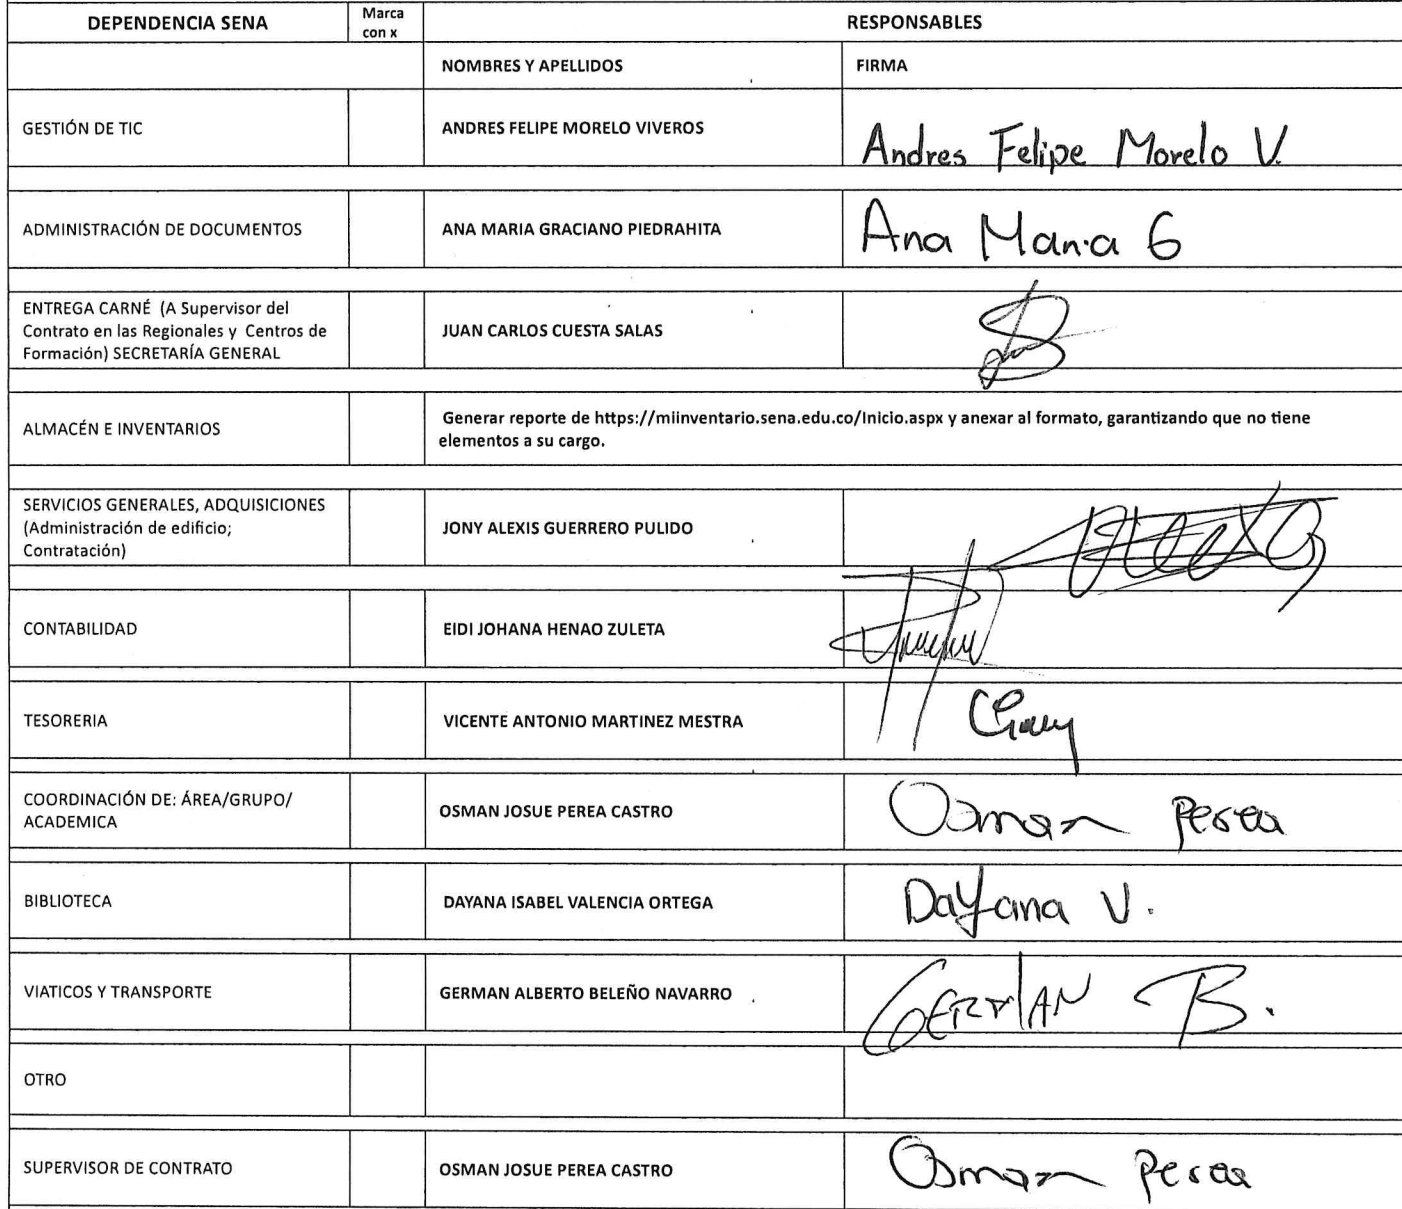 DEPENDENCIA SENA
Marca
con x
RESPONSABLES
NOMBRES Y APELLIDOS
FIRMA
GESTIÓN DE TIC
ANDRES FELIPE MORELO VIVEROS
Andres Felipe Morelo V.
ADMINISTRACIÓN DE DOCUMENTOS
ANA MARIA GRACIANO PIEDRAHITA
Ana Maria G
ENTREGA CARNÉ (A Supervisor del
Contrato en las Regionales y Centros de
Formación) SECRETARÍA GENERAL
JUAN CARLOS CUESTA SALAS
ALMACÉN E INVENTARIOS
Generar reporte de https://miinventario.sena.edu.co/Inicio.aspx y anexar al formato, garantizando que no tiene
elementos a su cargo.
SERVICIOS GENERALES, ADQUISICIONES
(Administración de edificio;
Contratación)
JONY ALEXIS GUERRERO PULIDO
CONTABILIDAD
EIDI JOHANA HENAO ZULETA
TESORERIA
VICENTE ANTONIO MARTINEZ MESTRA
COORDINACIÓN DE: ÁREA/GRUPO/
ACADEMICA
OSMAN JOSUE PEREA CASTRO
Osman Perea
BIBLIOTECA
DAYANA ISABEL VALENCIA ORTEGA
Dayana V.
VIATICOS Y TRANSPORTE
GERMAN ALBERTO BELEÑO NAVARRO
GERMAN B.
OTRO
SUPERVISOR DE CONTRATO
OSMAN JOSUE PEREA CASTRO
Osman Perea